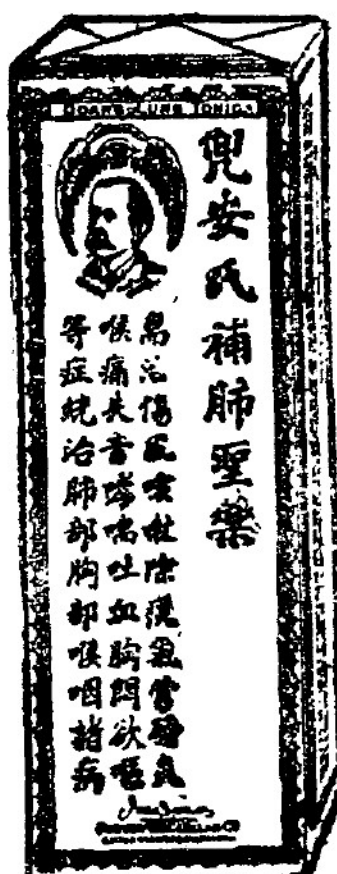 DOANS LUNG TONICA
兜安氏補肺聖藥
治傷風咳嗽除痰氣管
喉痛失音哮喘吐血胸悶欲嘔
等症統治肺部胸部喉咽諸病